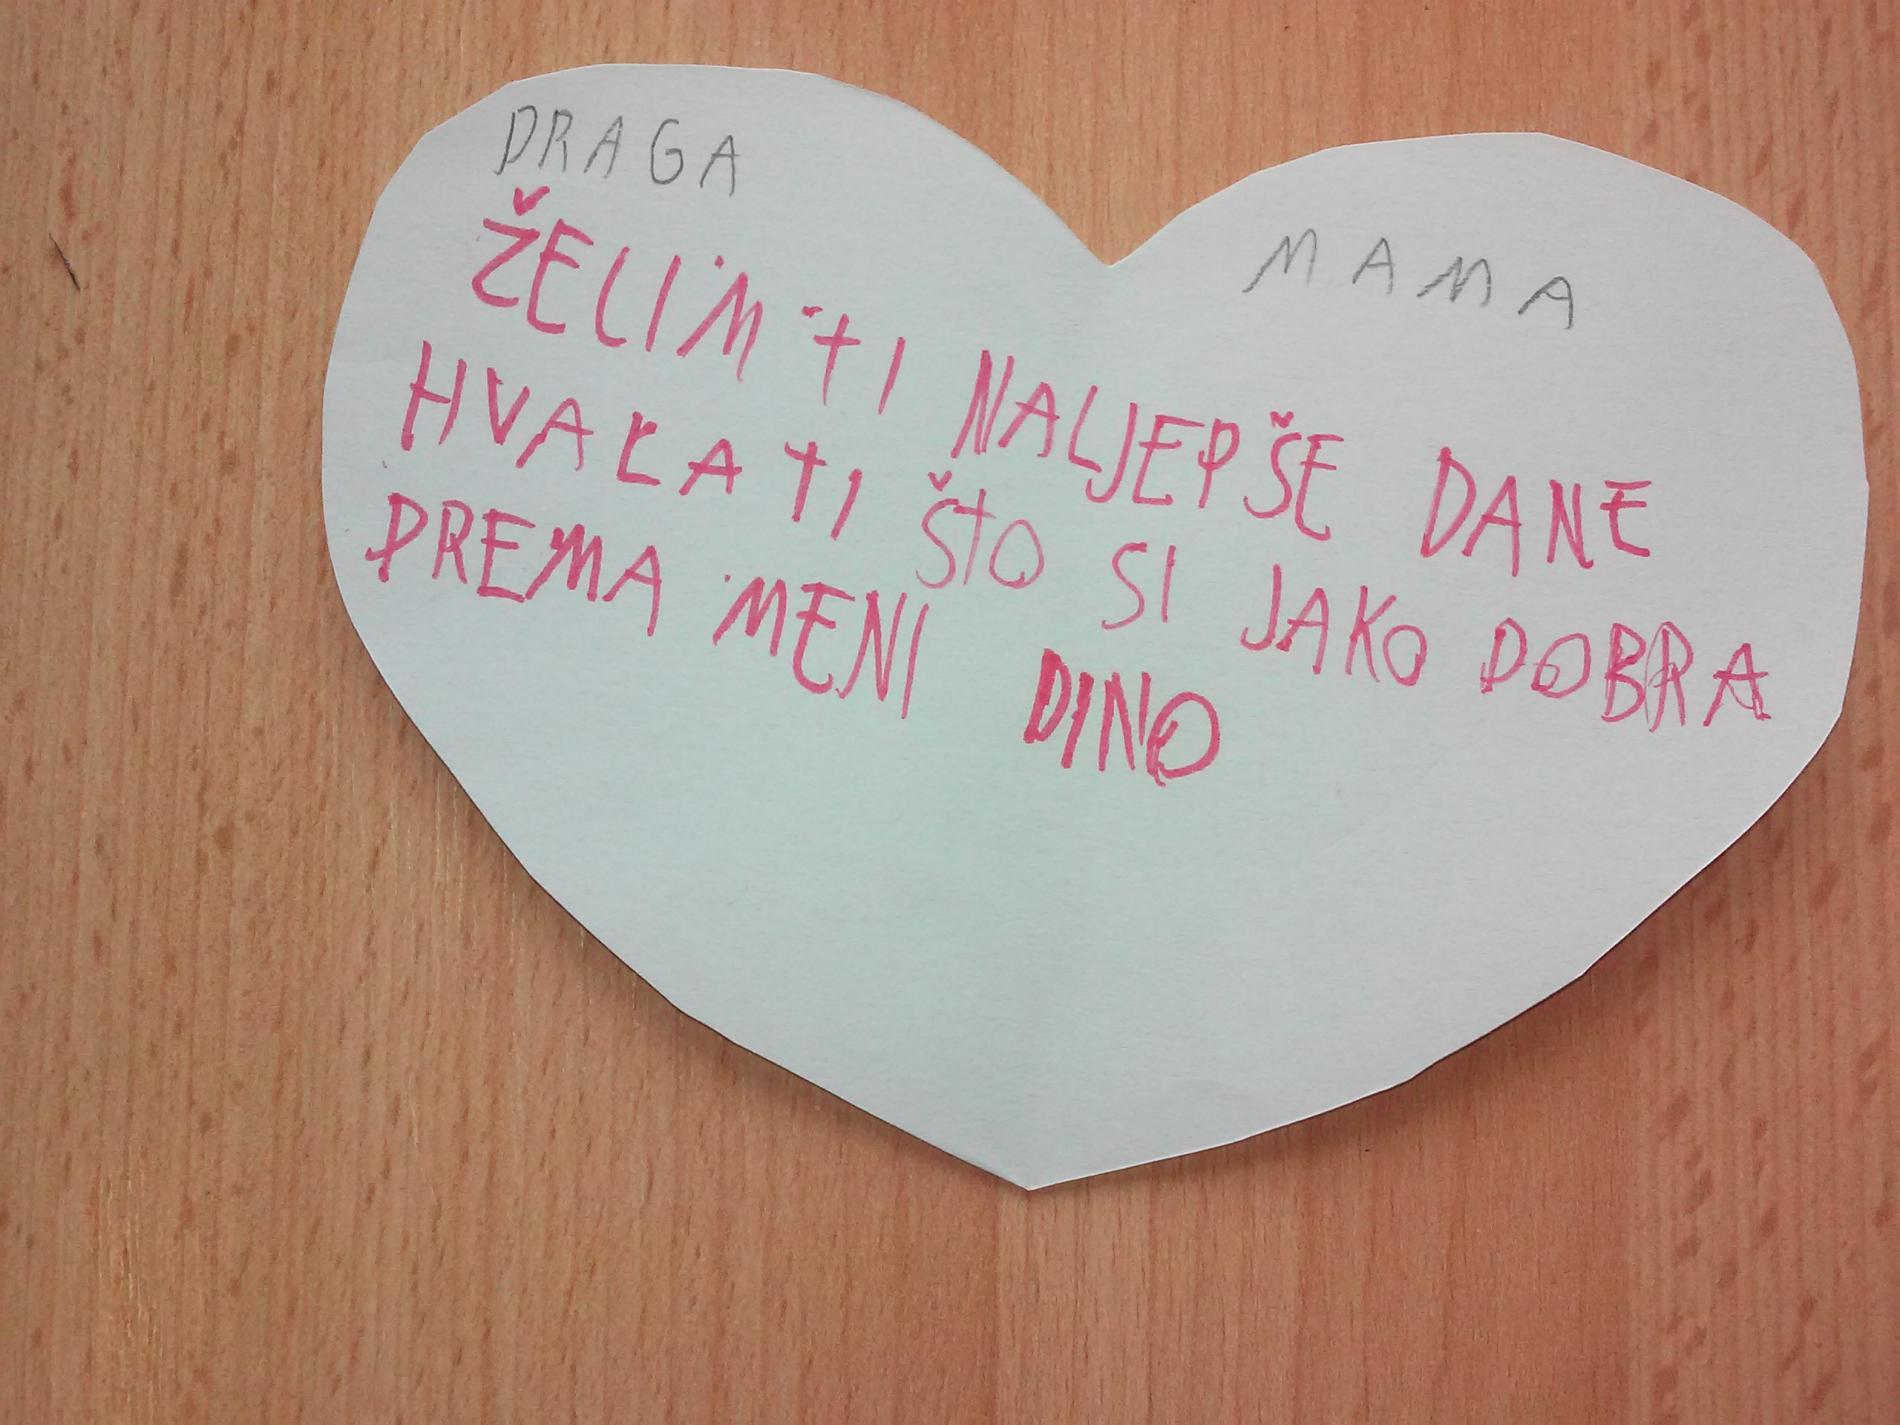 DRAGA MAMA
ŽELIM TI NALJEPŠE DANE
HVALA TI ŠTO SI JAKO DOBRA
PREMA MENI DINO